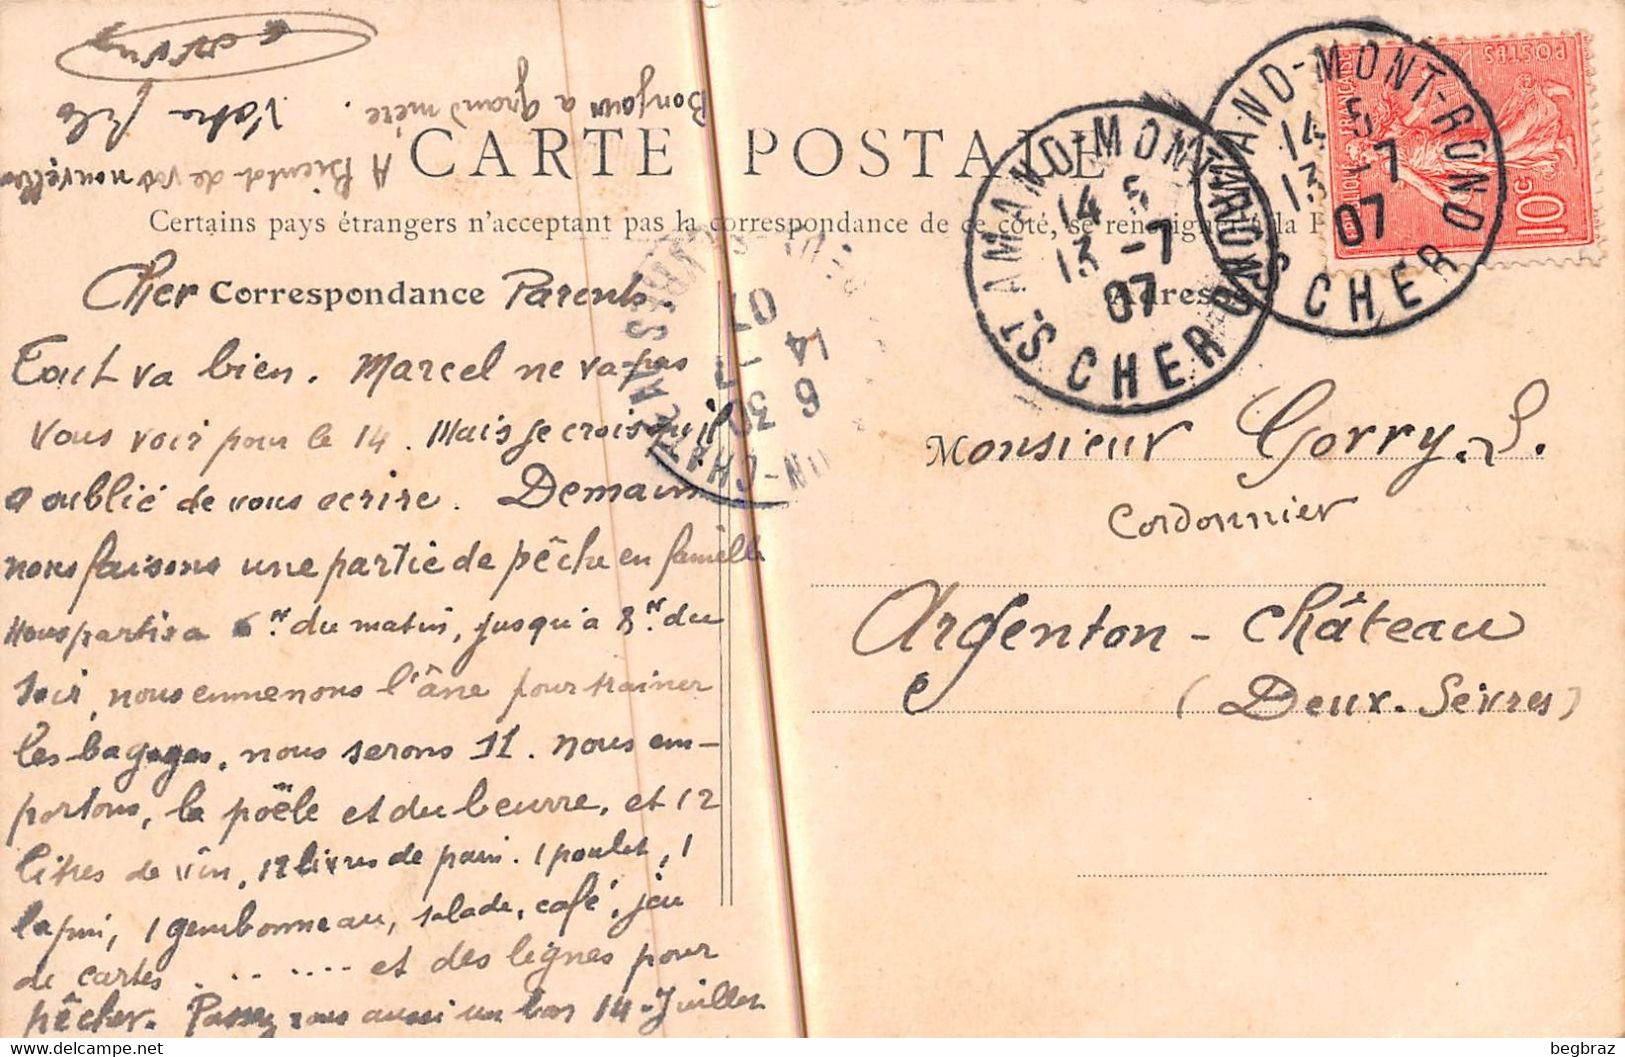 CARTE POSTALE
Certains pays étrangers n'acceptant pas la correspondance de ce côté, se renseigner à la P
Correspondance
Adresse
Cher Parents.
Tout va bien. Marcel ne va pas
vous voir pour le 14. Mais je crois qu'il
a oublié de vous ecrire. Demain
nous faisons une partie de pêche en famille
nous partis a 6 h. du matin, jusqu'a 8 h. du
soir, nous emmenons l'âne pour trainer
les bagages, nous serons 11. nous em-
portons, la poële et du beurre, et 12
litres de vin, 12 livres de pain. 1 poulet, 1
lapin, 1 gembonneau, salade, café, jeu
de cartes . . . . . . . et des lignes pour
pêcher. Passez vous aussi un bon 14-Juillet
A Bientot de vos nouvelles
Bonjour a grand mère. Votre fils
Monsieur Gorry. S.
Cordonnier
Argenton-Château
(Deux-Sèvres)
ST AMAND-MONT-ROND
14 5
13 -7
07
CHER
ST AMAND-MONT-ROND
14 5
13 -7
07
CHER
6 30
14 -7
07
POSTES
10c
begbraz